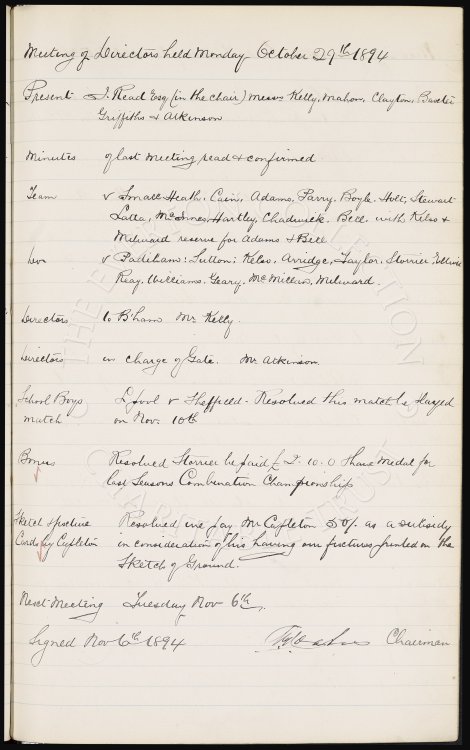 Meeting of Directors held Monday October 29th 1894
Present J. Read Esq (in the chair) Messrs Kelly, Mahon, Clayton, Baxter
Griffiths & Atkinson
Minutes of last meeting read & confirmed
Team v Small Heath. Cain, Adams, Parry, Boyle, Holt, Stewart
Latta, McInnes, Hartley, Chadwick. Bell. with Kelso &
Milward reserve for Adams & Bell
Do v Padiham: Sutton: Kelso, Arridge, Taylor. Storrier. Elliott
Reay. Williams. Geary. McMillan, Milward.
Directors to B'ham Mr. Kelly.
Directors in charge of Gate. Mr Atkinson.
School Boys L'pool v Sheffield - Resolved this match be played
Match on Nov. 10th
Bonus Resolved Storrier be paid £2.10.0 Share Medal for
last Seasons Combination Championship
Sketch & fixture Resolved we pay Mr Cafleton 50/- as a subsidy
Cards by Cafleton in consideration of his having our fixtures printed on the
Sketch of Ground.
Next Meeting Tuesday Nov 6th.
Signed Nov 6th 1894 Chairman